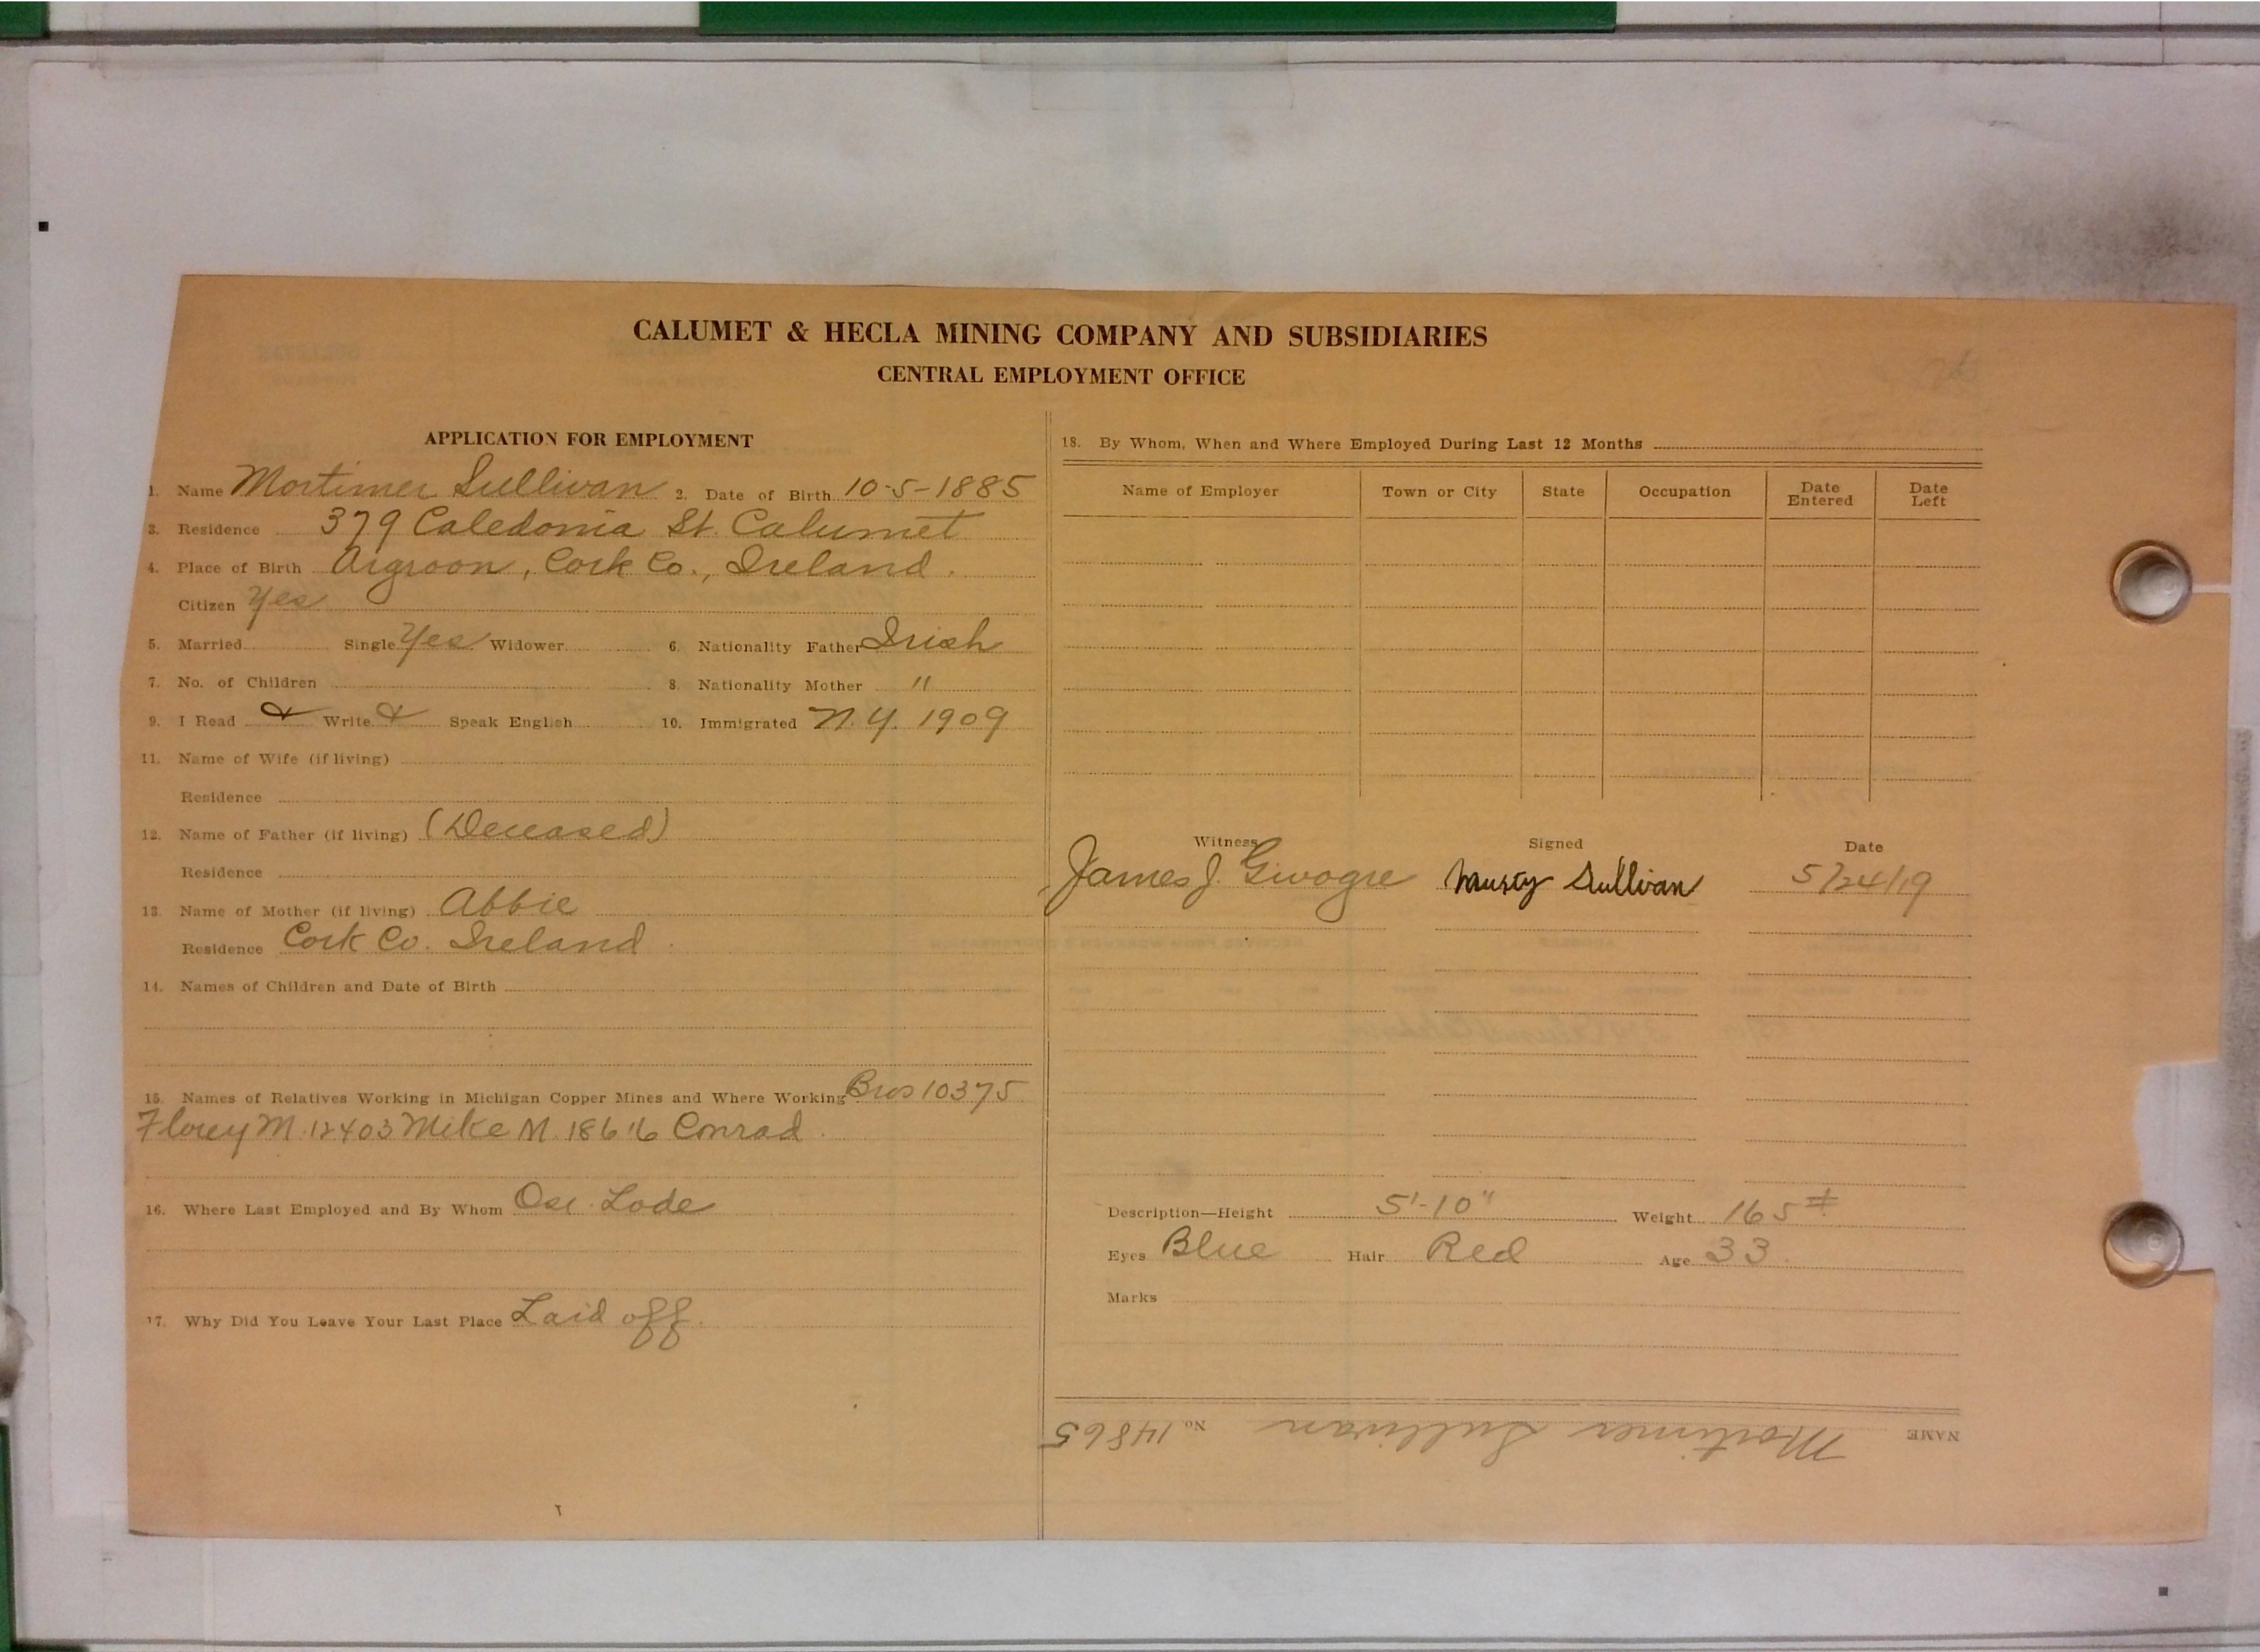 CALUMET & HECLA MINING COMPANY AND SUBSIDIARIES
CENTRAL EMPLOYMENT OFFICE
APPLICATION FOR EMPLOYMENT
1. Name Mortimer Sullivan 2. Date of Birth 10-5-1885
3. Residence 379 Caledonia St. Calumet
4. Place of Birth Argroon, Cork Co., Ireland.
Citizen Yes
5. Married Single Yes Widower 6. Nationality Father Irish
7. No. of Children 8. Nationality Mother "
9. I Read & Write & Speak English 10. Immigrated N.Y. 1909
11. Name of Wife (if living)
Residence
12. Name of Father (if living) (Deceased)
Residence
13. Name of Mother (if living) Abbie
Residence Cork Co. Ireland
14. Names of Children and Date of Birth
15. Names of Relatives Working in Michigan Copper Mines and Where Working Bros 10375
Florey M. 12403 Mike M. 18616 Conrad
16. Where Last Employed and By Whom Osc. Lode
17. Why Did You Leave Your Last Place Laid off.
18. By Whom, When and Where Employed During Last 12 Months
Name of Employer Town or City State Occupation Date Entered Date Left
Witness Signed Date
James J. Sullivan 5/24/19
Description—Height 5'-10" Weight 165#
Eyes Blue Hair Red Age 33
Marks
NAME Mortimer Sullivan No. 14865